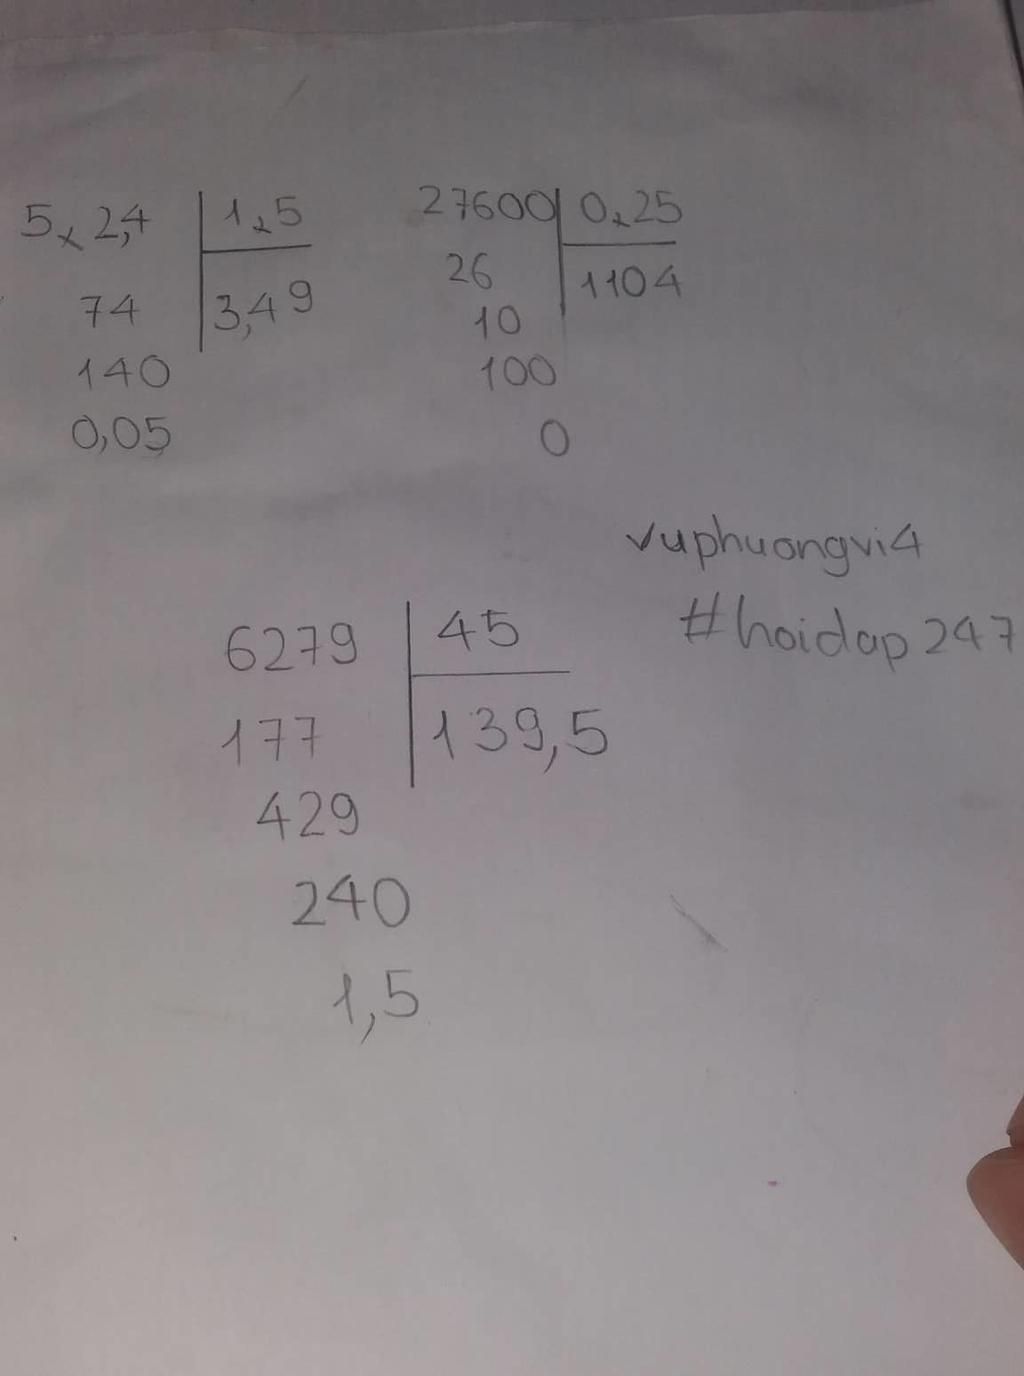 5,2,4 1,5
74 3,49
140
0,05
27600 0,25
26 1104
10
100
0
vuphuongvi4
#hoidap247
6279 45
177 139,5
429
240
1,5